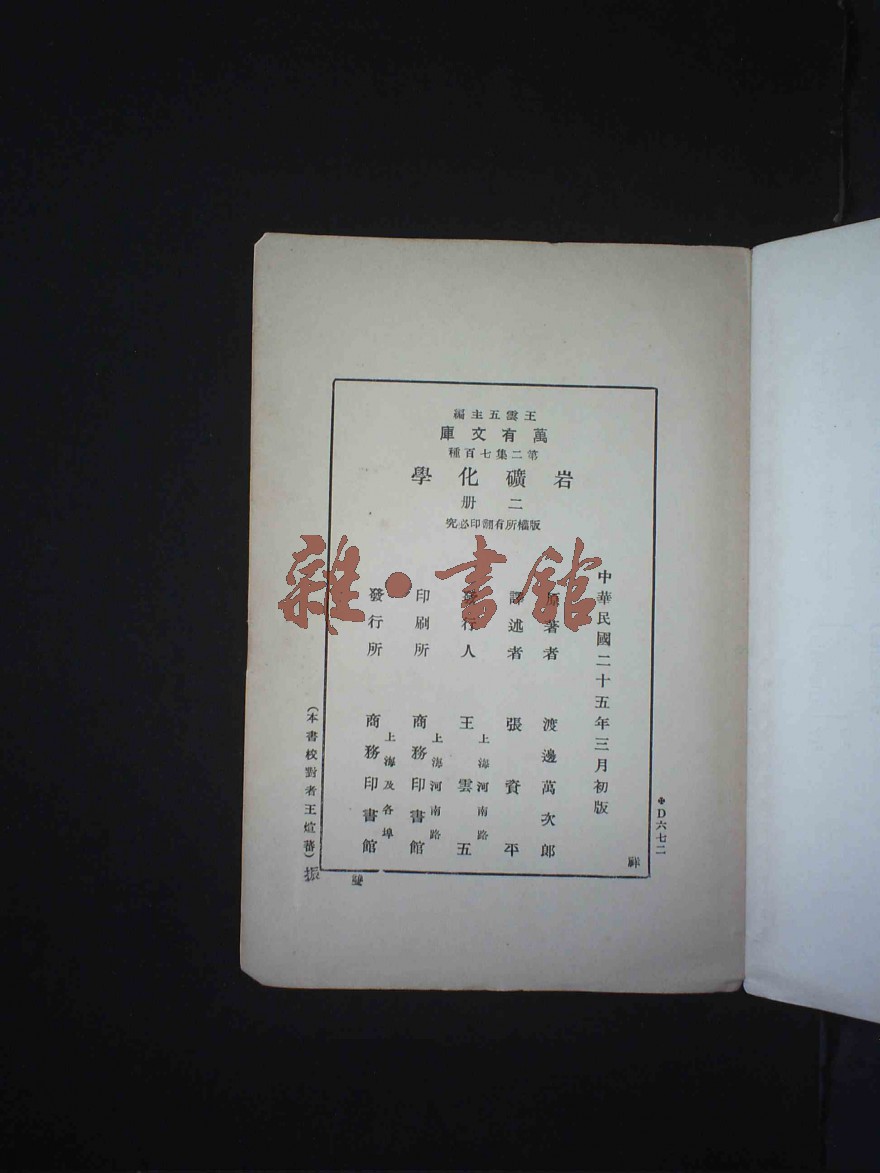 王雲五主編
萬有文庫
第二集七百種
岩礦化學
二册
版權所有翻印必究
中華民國二十五年三月初版
原著者 渡邊萬次郎
譯述者 張資平
發行人 王雲五
上海河南路
印刷所 商務印書館
上海河南路
發行所 商務印書館
上海及各埠
(本書校對者王煊蕃)
振
雙
D六七二
雜·書館